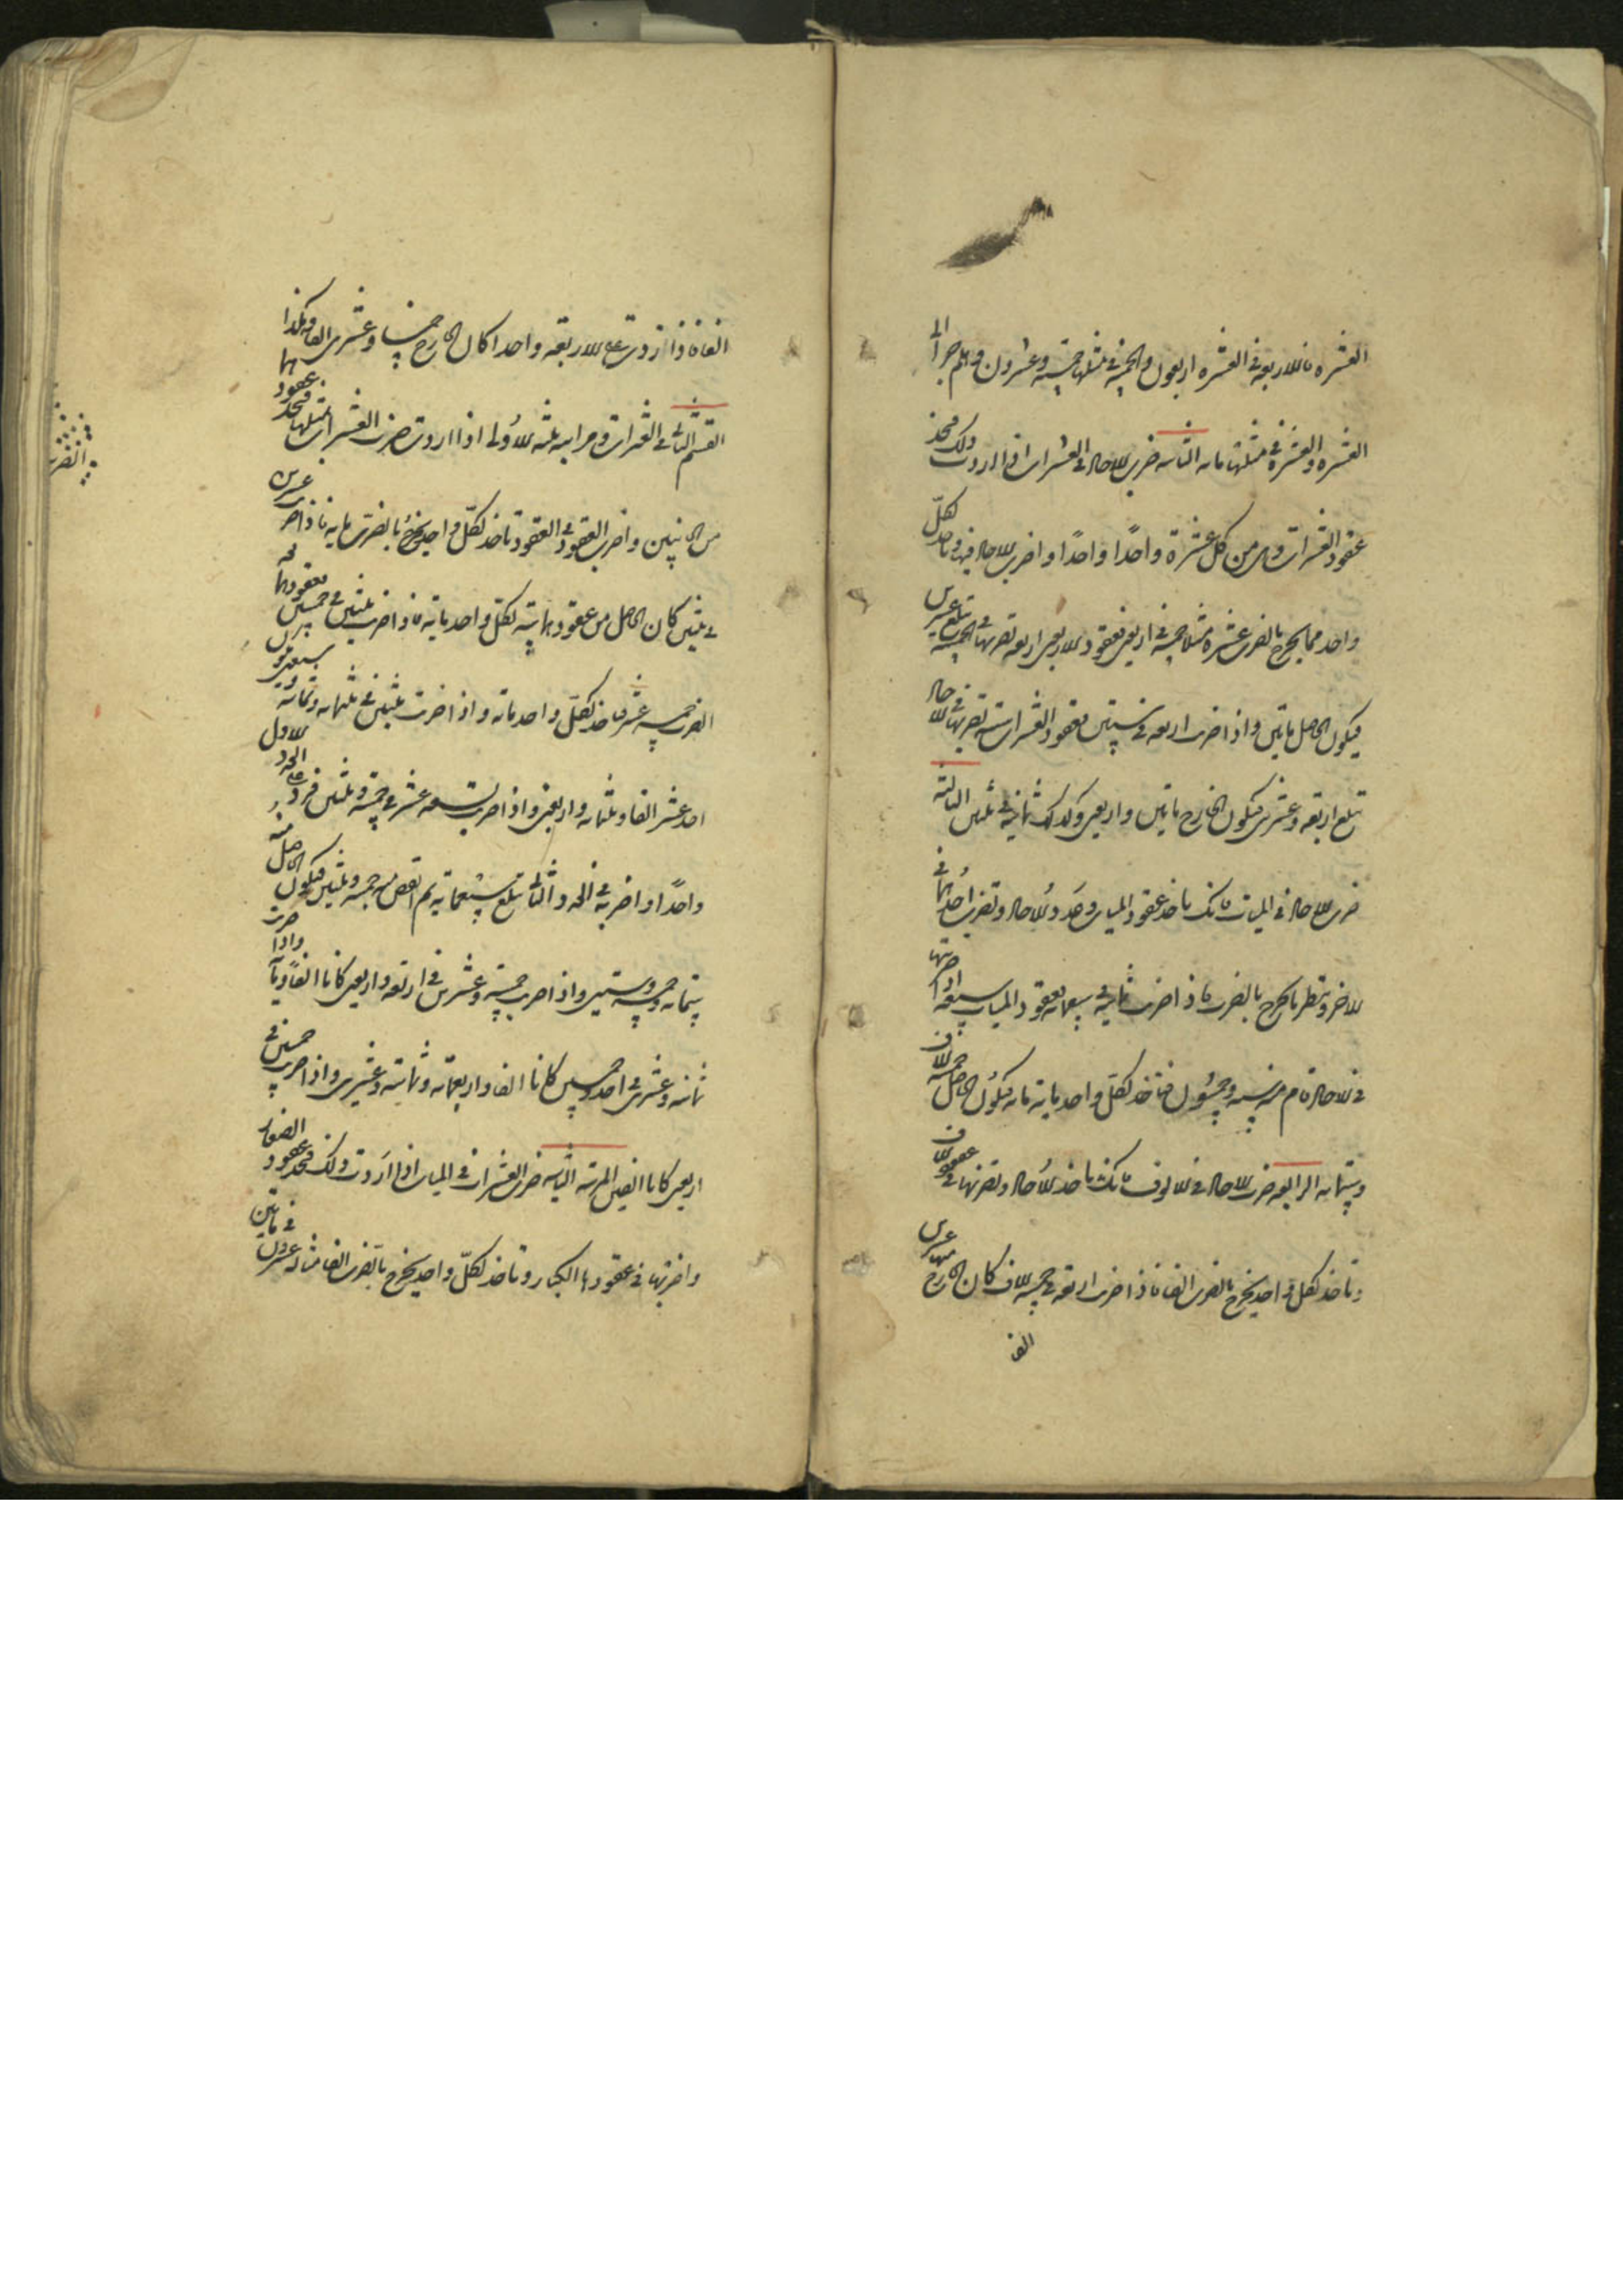 العشره فالاربعة في العشره اربعون والخمسة في مثلها خمسة وعشرون وهلم جرا الى
العشره والعشرة في مثلها مائه الثانيه ضرب الاحاد في العشرات اذا اردت ذلك فخذ
عقود العشرات وهي من كل عشرة واحدًا واحدًا واضرب الاحاد فيها وتاخذ لكلّ
واحد مما يخرج بالضرب عشره مثلا خمسة في اربعين فعقود الاربعين اربعه تضربها في الخمسة تبلغ عشرين
فيكون الحاصل مايتين واذا ضربت اربعه في ستين فعقود العشرات ستة تضربها في الاحاد
تبلغ اربعة وعشرين فيكون الخارج مايتين واربعين وكذلك ثمانية في ثلثين الثالثة
ضرب الاحاد في الميات فانك تاخذ عقود الميات وحدود الاحاد وتضرب احدهما في
الاخر وتنظر ما يخرج بالضرب فاذا ضربت ثمانية في سبعمائه فعقود الميات سبعة اذا ضربتها
في الاحاد قام منه ستة وخمسون فتاخذ لكلّ واحد مائة مائه فيكون الحاصل خمسة الاف
وستمائه الرابعه ضرب الاحاد في الالوف فانك تاخذ الاحاد وتضربها في عقود الالوف
وتاخذ لكل واحد يخرج بالضرب الفا فاذا ضربت اربعة في خمسة الاف كان الخارج منها عشرين
الف
الفا فاذا زدت على الاربعة واحدا كان الخارج خمسا وعشرين الفا وهكذا
القسم الثاني في العشرات ومراتبه ثلثه الاولى اذا اردت ضرب العشرات بمثلها فتخذ عقودها
من الجانبين واضرب العقود في العقود تاخذ لكلّ واحد يخرج بالضرب مايه فاذا ضربت عشرين
في ثلثين كان الحاصل من عقودهما ستة لكلّ واحد مائة فاذا ضربت ثلثين في خمسين فعقودهما
الضرب خمسه عشر تاخذ لكلّ واحد مائه واذا ضربت ثلثين في ثلثمائه وثمانية وسبعين
احد عشر الفا وثلثمائه واربعين واذا ضربت تسعه عشر في خمسة وثلثين فزد على الحد الاول
واحدًا واضربه في الحد الثاني تبلغ سبعمائة ثم انقص منه خمسه وثلثين فيكون الحاصل منه
ستمائه وخمسه وستين واذا ضربت خمسة وعشرين في اربعة واربعين كانا الفًا ومائة واذا ضربت
ثمانيه وعشرين في احد وخمسين كانا الفا واربعمائه وثمانية وعشرين واذا ضربت خمسين في
اربعين كانا الفين المرتبه الثانيه ضرب العشرات في الميات اذا اردت ذلك فخذ عقود الصغار
واضربها في عقودها الكبار وتاخذ لكلّ واحد يخرج بالضرب الفا مثاله عشرون في مايتين